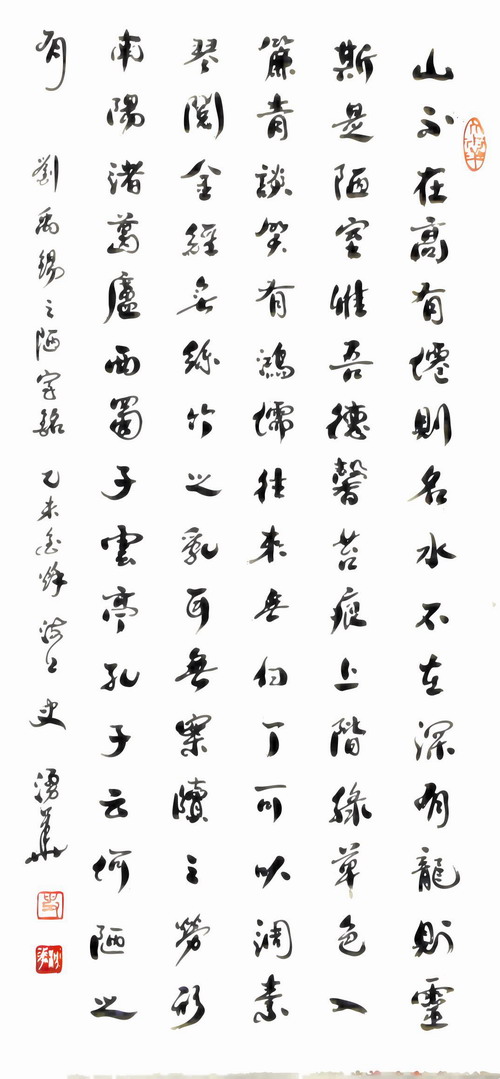 山不在高有僊則名水不在深有龍則靈
斯是陋室惟吾德馨苔痕上階綠草色入
簾青談笑有鴻儒往來無白丁可以調素
琴閱金經無絲竹之亂耳無案牘之勞形
南陽諸葛廬西蜀子雲亭孔子云何陋之
有 劉禹錫之陋室銘 乙未金秋 史湧華